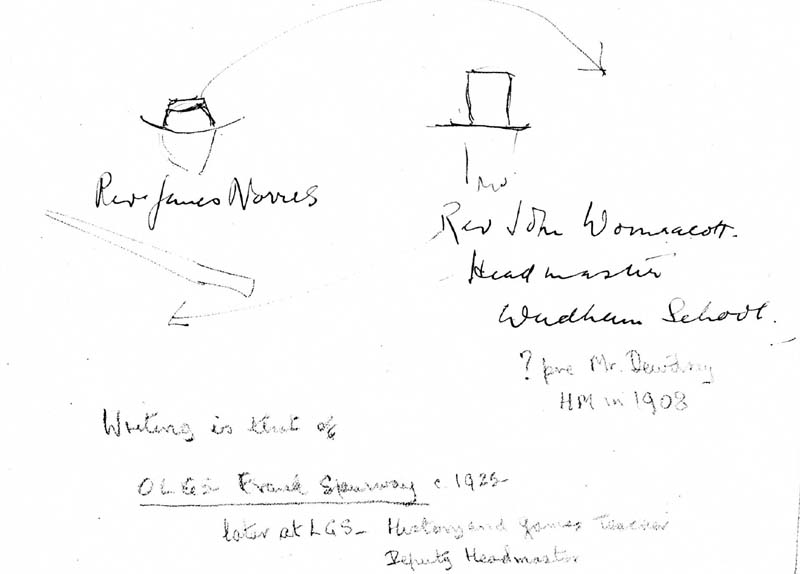 Rev. James Norris
Rev John Wonnacott.
Headmaster
Wadham School.
? pre Mr. Dewdney
HM in 1908
Writing is that of
OLGS Frank Spurway c. 1925
later at LGS - History and Games Teacher
Deputy Headmaster